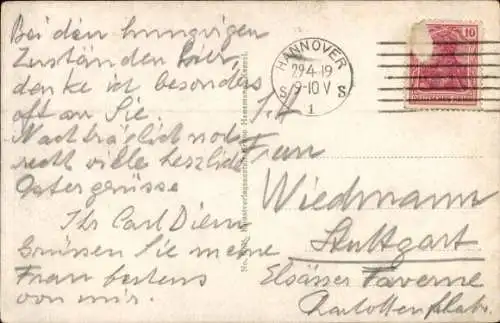 Bei den hungrigen
Zuständen hier,
denke ich besonders
oft an Sie.
Nachträglich noch
recht viele herzliche
Ostergrüsse
Ihr Carl Diem
Grüssen Sie meine
Frau bestens
von mir.
HANNOVER
29.4.19
9-10 V
S S
1
10
Frau
Wiedmann
Stuttgart
Elsässer Taverne